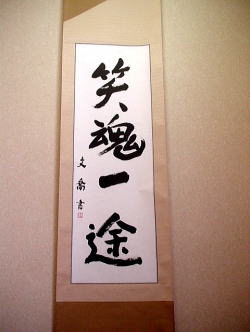 笑魂一途
文喬書